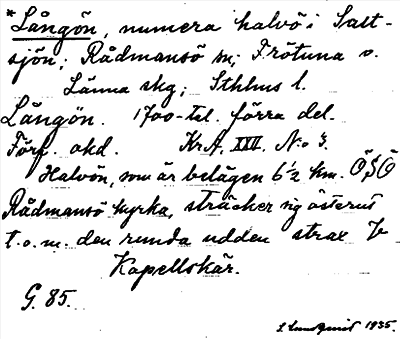 *Långön, numera halvö i Salt-
sjön; Rådmansö sn; Frötuna o.
Länna skg; Sthlms l.
Långön. 1700-tal. förra del.
Förf. okd. Kr.A. XXII, N:o 3.
Halvön, som är belägen 6½ km. Ö.S.Ö
Rådmansö kyrka, sträcker sig österut
t.o.m. den runda udden strax V
Kapellskär.
G. 85.
Lundqvist 1935.